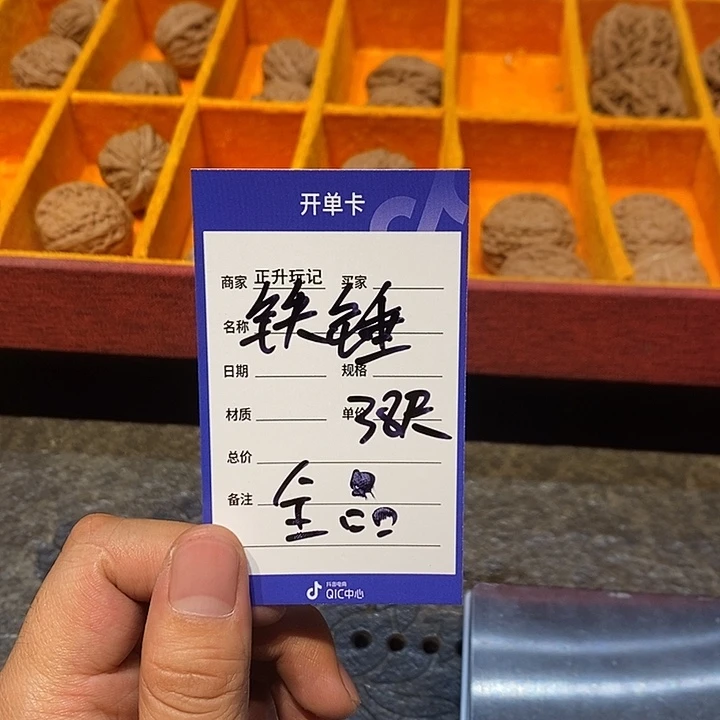 开单卡
商家 正升玩记 买家
名称 铁锤
日期 规格
材质 单价 38尺
总价
备注 全品
抖音电商
QIC中心